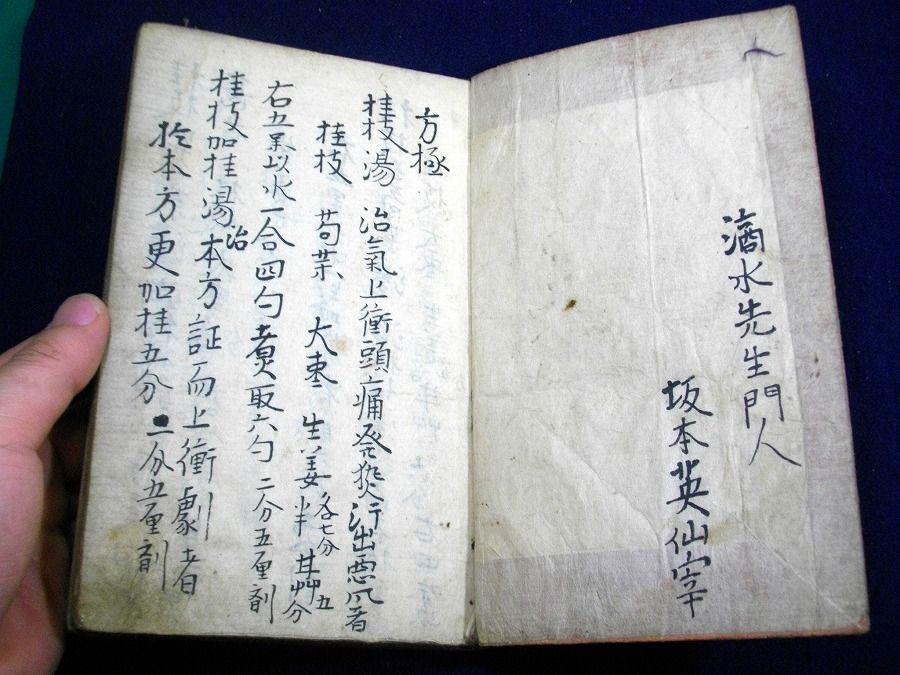 滴水先生門人
坂本英仙宰
方極
桂枝湯 治氣上衝頭痛発熱汗出悪风者
桂枝 芍薬 大棗 生姜 各七分半 甘艸 五分
右五味以水一合四勺煮取六勺 二分五厘剤
桂枝加桂湯 治本方証而上衝劇者
於本方更加桂五分 二分五厘剤